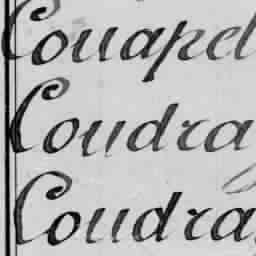 Couapel
Coudra
Coudra